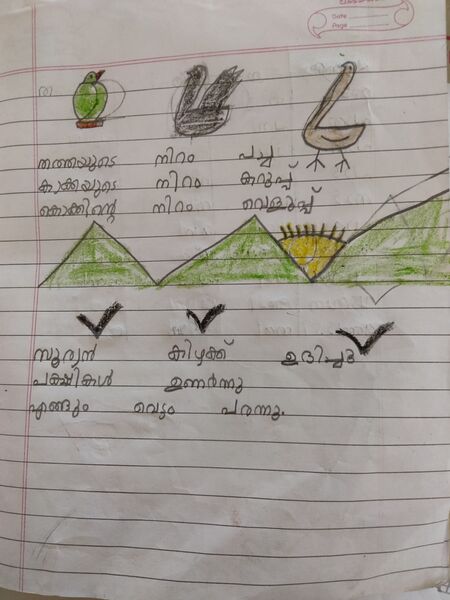 Date
Page
തത്തയുടെ നിറം പച്ച
കാക്കയുടെ നിറം കറുപ്പ്
കൊക്കിന്റെ നിറം വെളുപ്പ്
സൂര്യൻ കിഴക്ക് ഉദിച്ചു
പക്ഷികൾ ഉണർന്നു
എങ്ങും വെട്ടം പരന്നു.